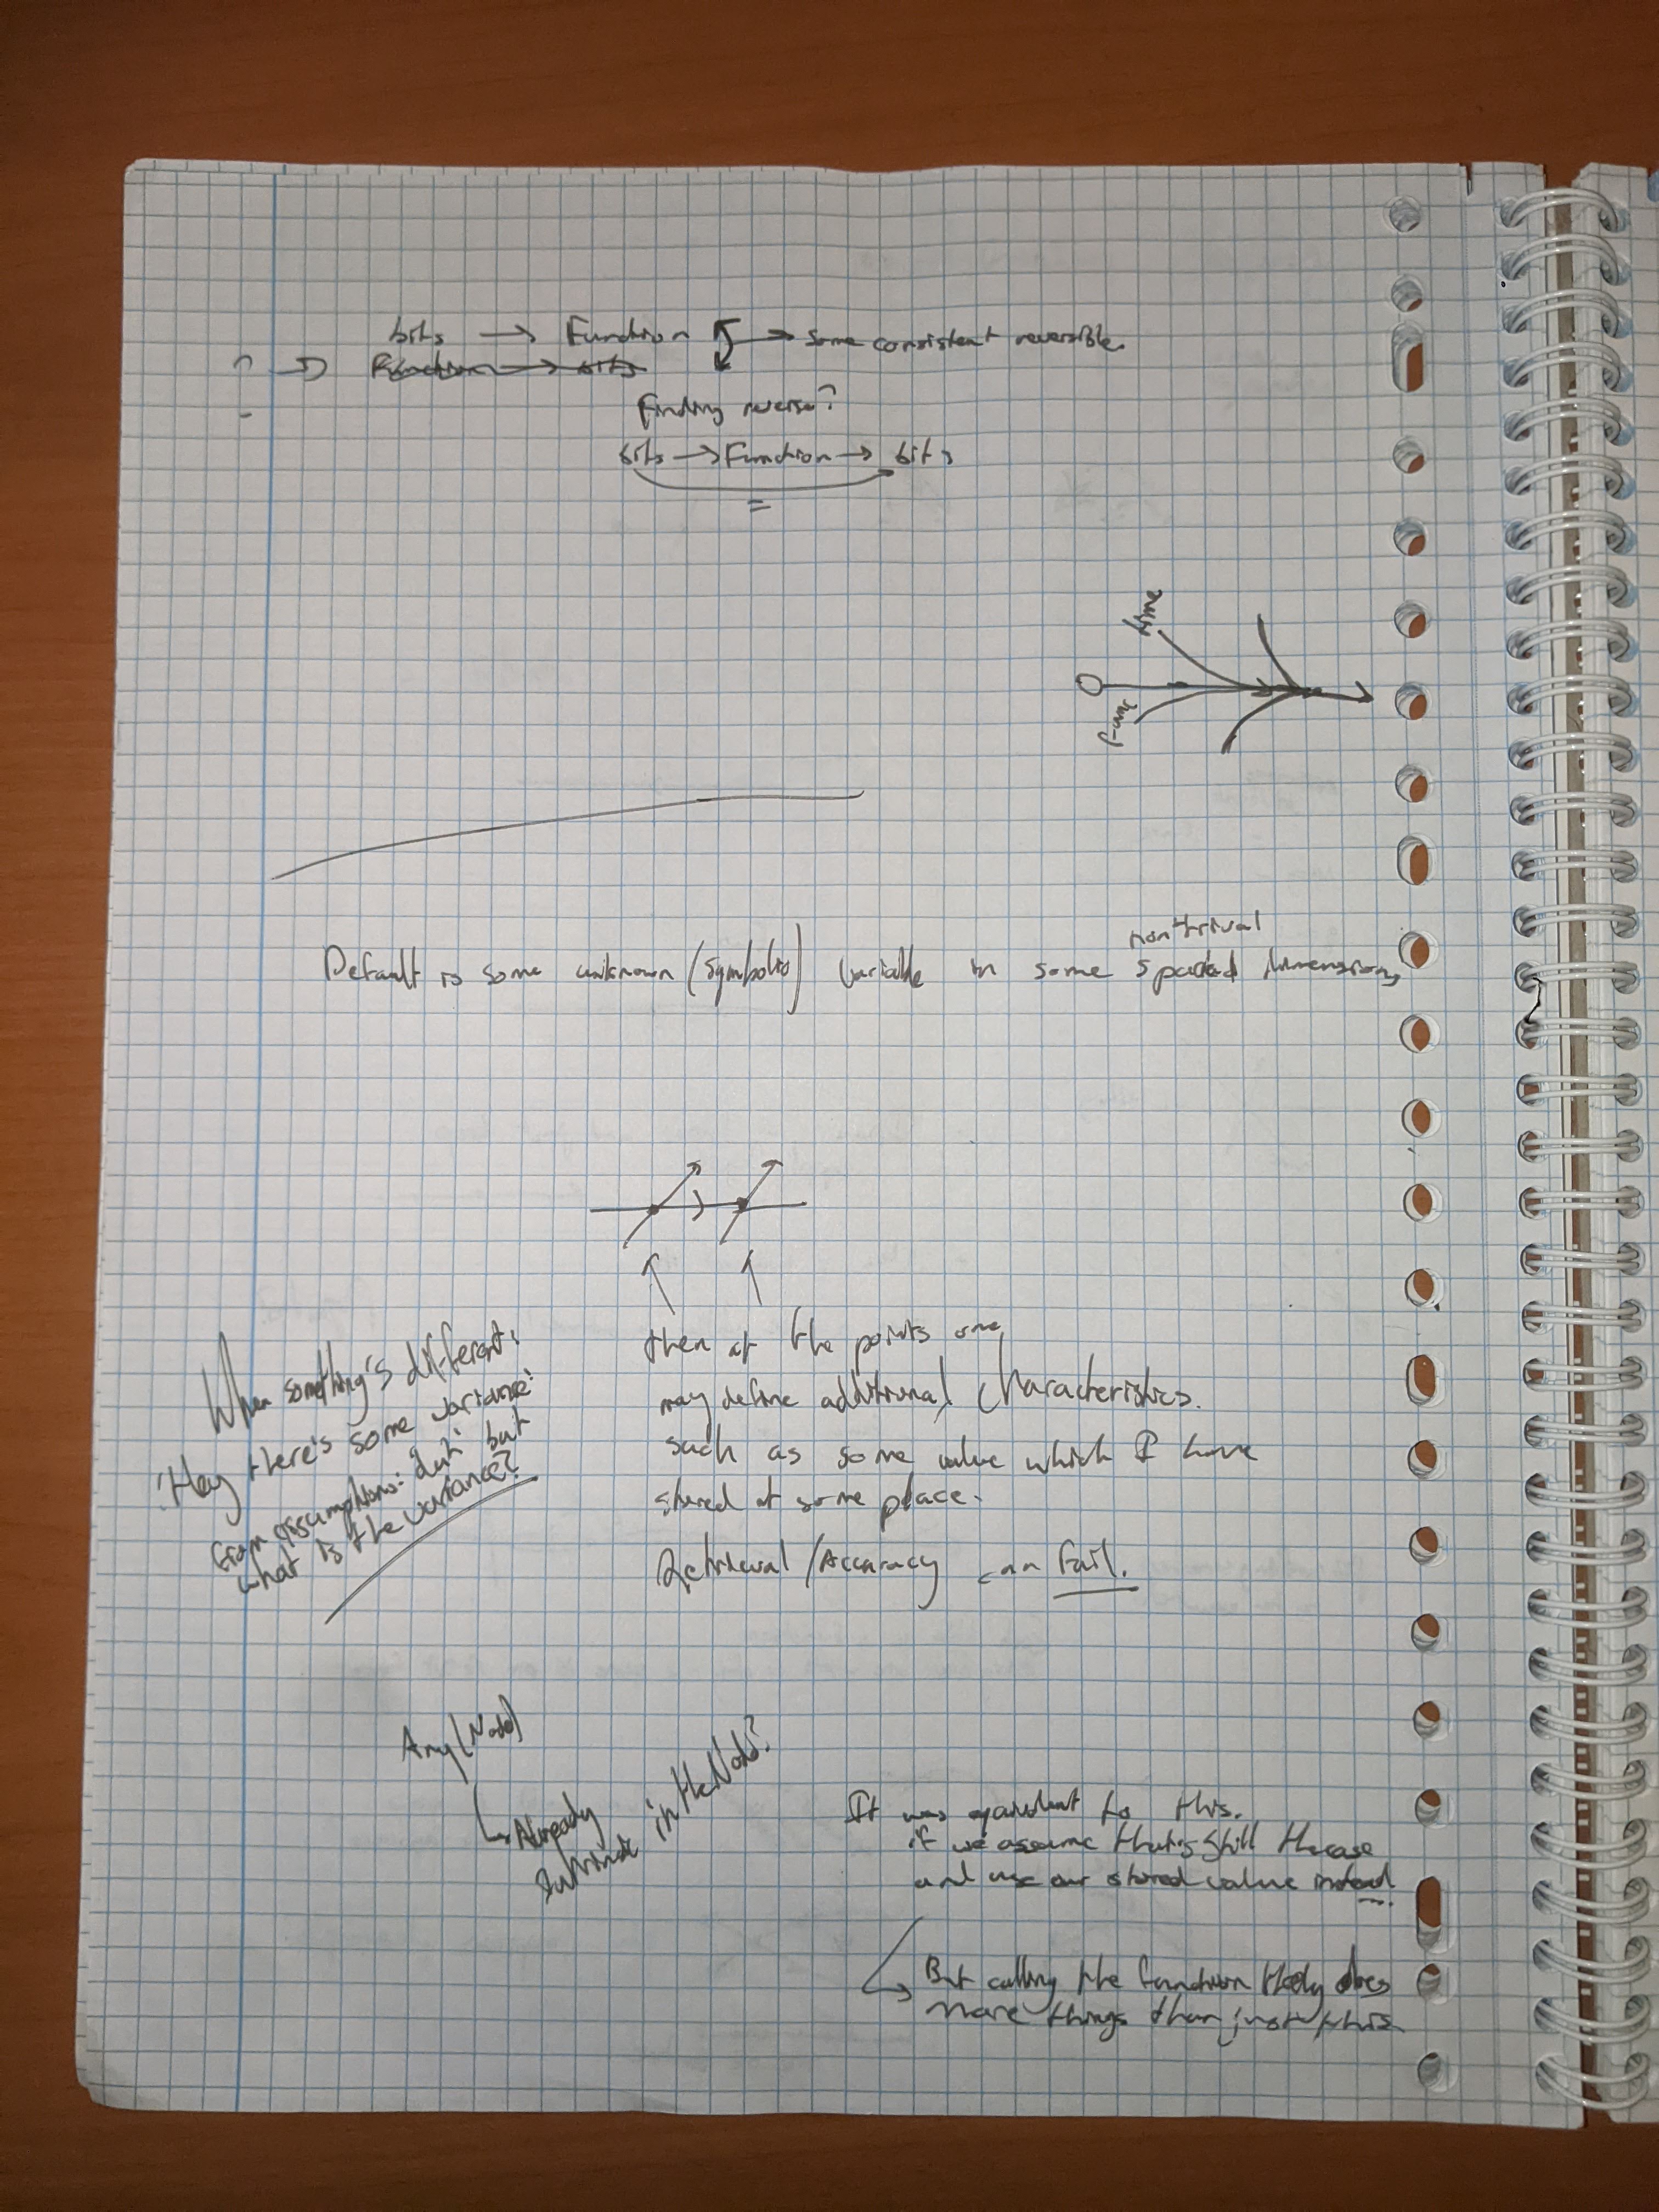 bits → Function → Some consistent reversible
Function → bits
Finding reverse?
bits → Function → bits
=
time
func
nontrivial
Default is some unknown (symbolic) variable in some spatial dimension,
then at the points one
may define additional characteristics.
such as some value which I have
stored at some place.
Retrieval/Accuracy can fail.
When something's different:
'Hey there's some variance'
from assumptions: 'duh' but
what is the variance?
Any(Node)
↳ Already
intrinsic in the Node?
It was equivalent to this.
if we assume that is still the case
and use our stored value instead
But calling the function likely does
more things than just this